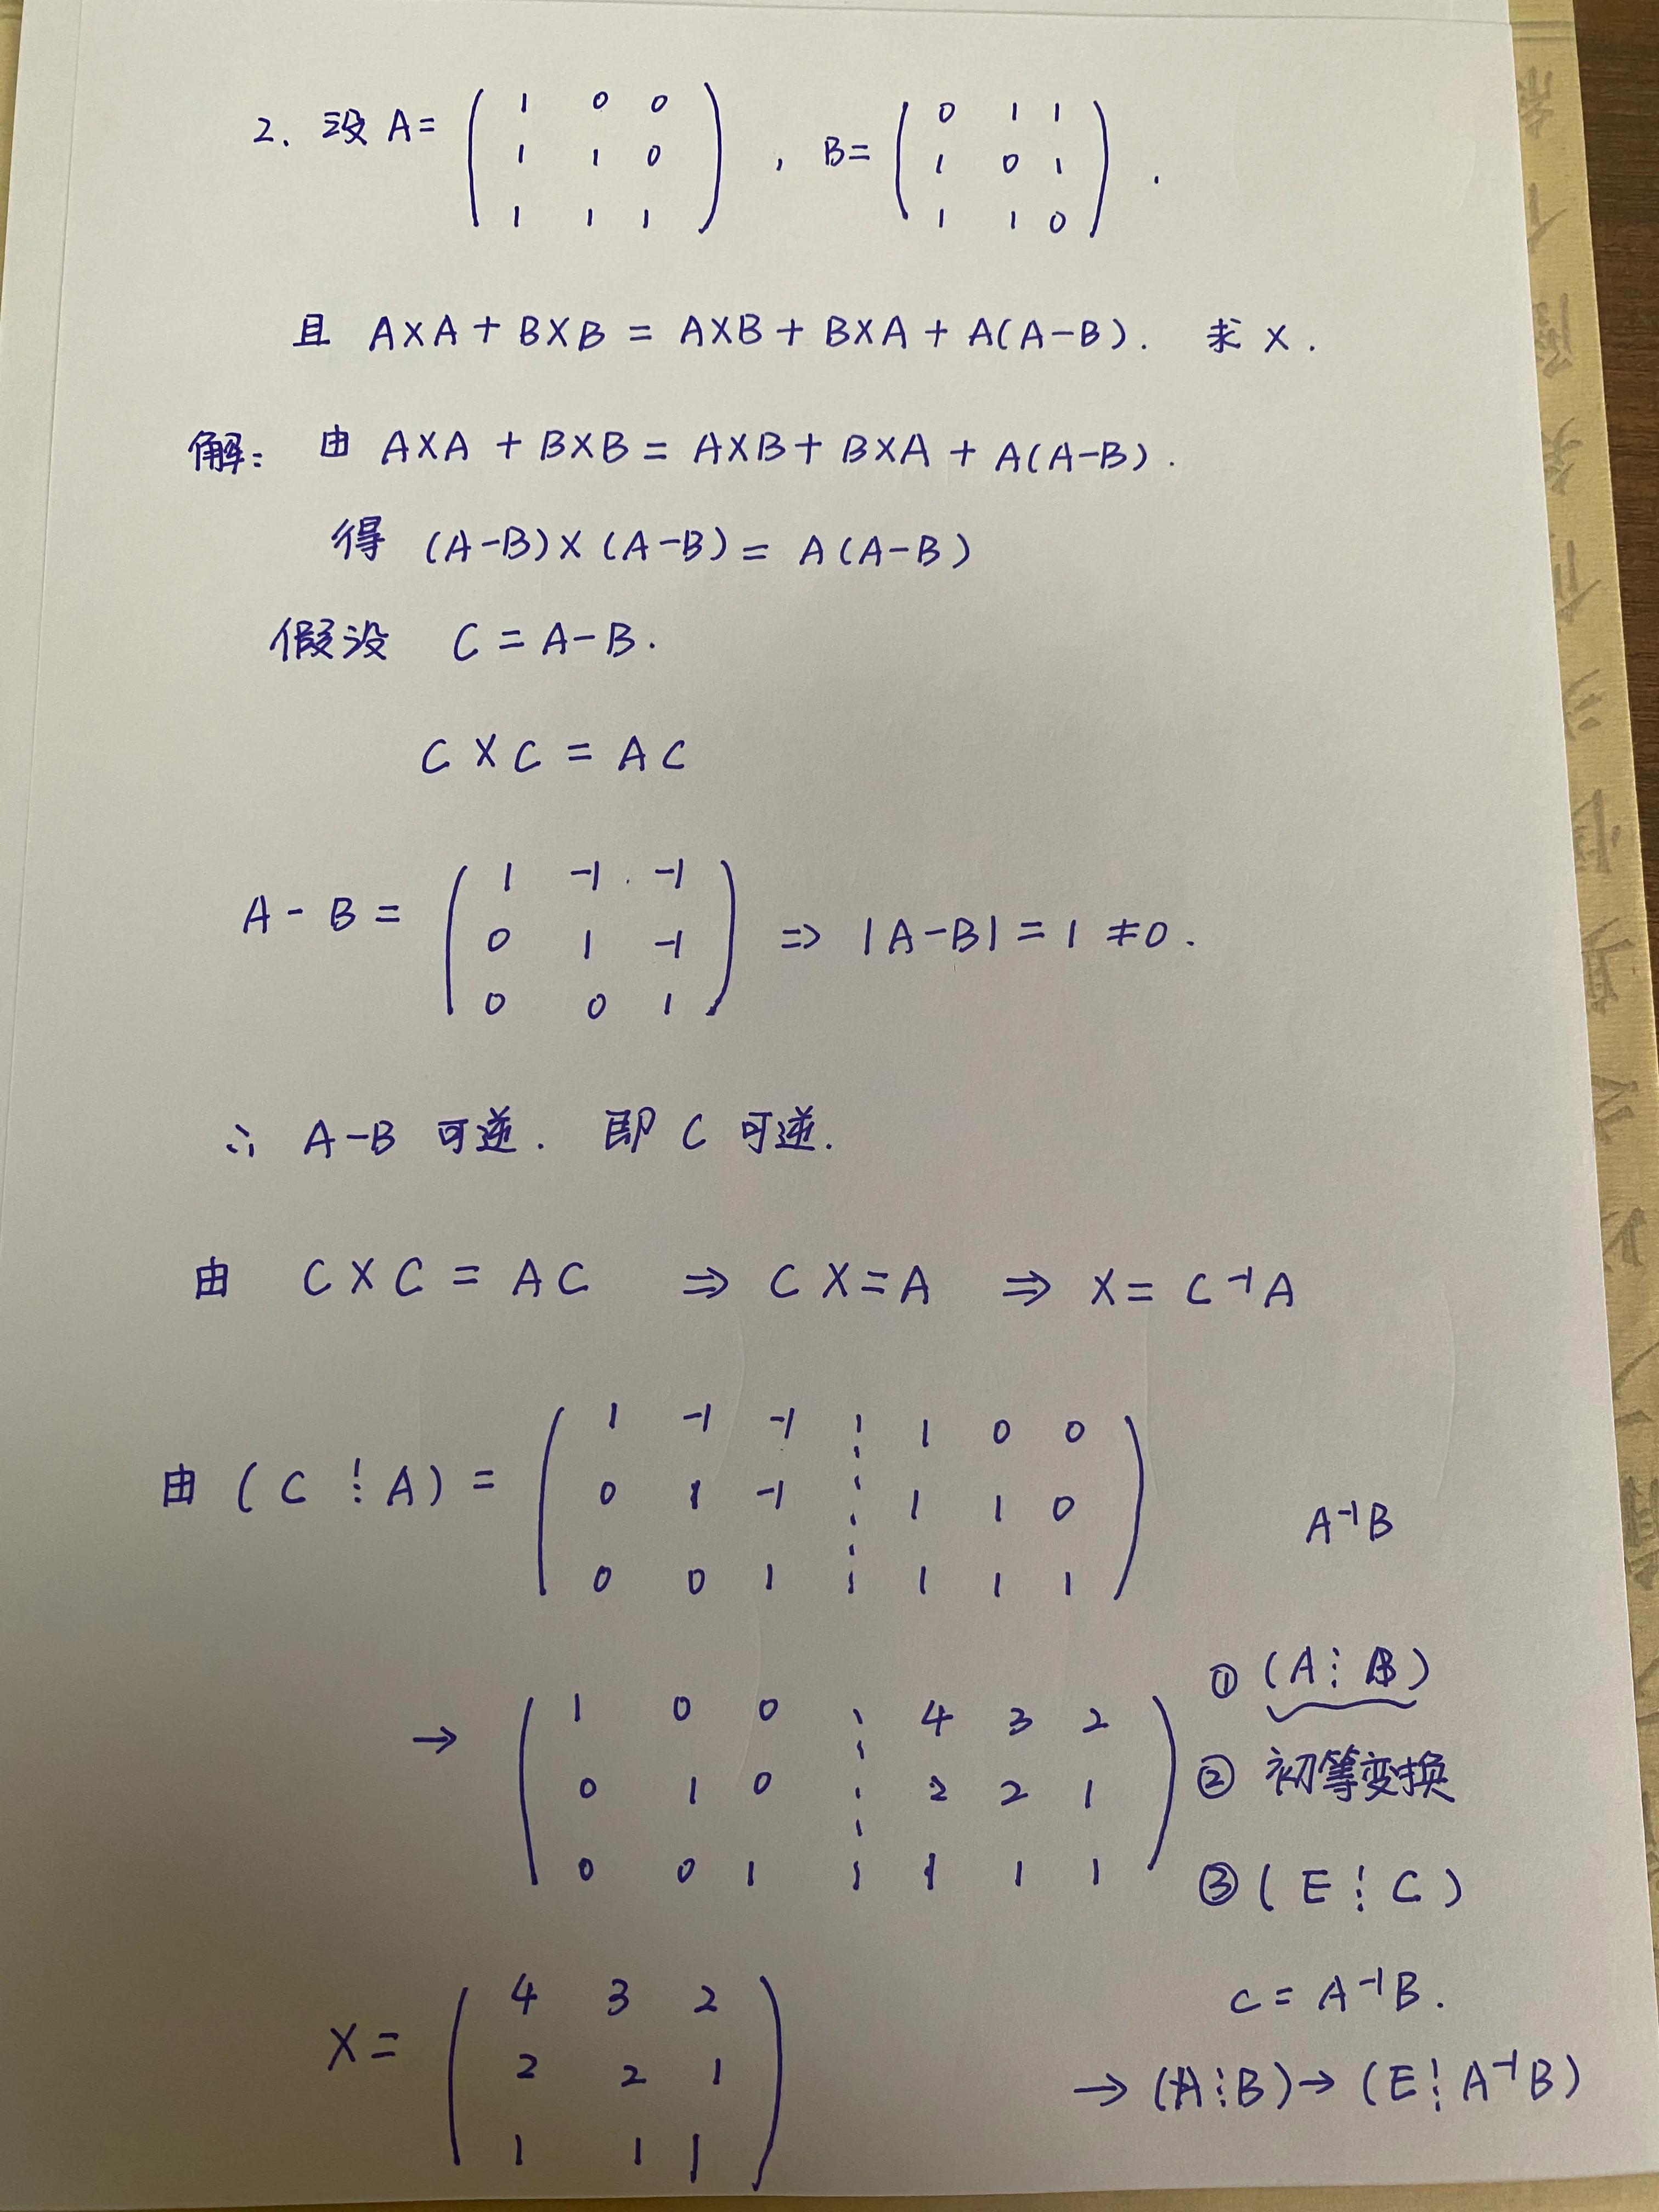 2. 设 A= ( 1 0 0 , B= ( 0 1 1
1 1 0 1 0 1
1 1 1 ) 1 1 0 ) .
且 AXA + BXB = AXB + BXA + A(A-B). 求 X.
解: 由 AXA + BXB = AXB + BXA + A(A-B).
得 (A-B)X(A-B) = A(A-B)
假设 C = A-B.
C X C = A C
A - B = ( 1 -1 -1
0 1 -1 ⇒ |A-B| = 1 ≠0.
0 0 1 )
∴ A-B 可逆. 即 C 可逆.
由 C X C = A C ⇒ C X = A ⇒ X = C⁻¹A
由 ( C ⋮ A ) = ( 1 -1 -1 ⋮ 1 0 0
0 1 -1 ⋮ 1 1 0
0 0 1 ⋮ 1 1 1 )
→ ( 1 0 0 ⋮ 4 3 2
0 1 0 ⋮ 2 2 1
0 0 1 ⋮ 1 1 1 )
X = ( 4 3 2
2 2 1
1 1 1 )
A⁻¹B
① (A ⋮ B)
② 初等变换
③ ( E ⋮ C )
C = A⁻¹B.
→ (A ⋮ B) → ( E ⋮ A⁻¹B )